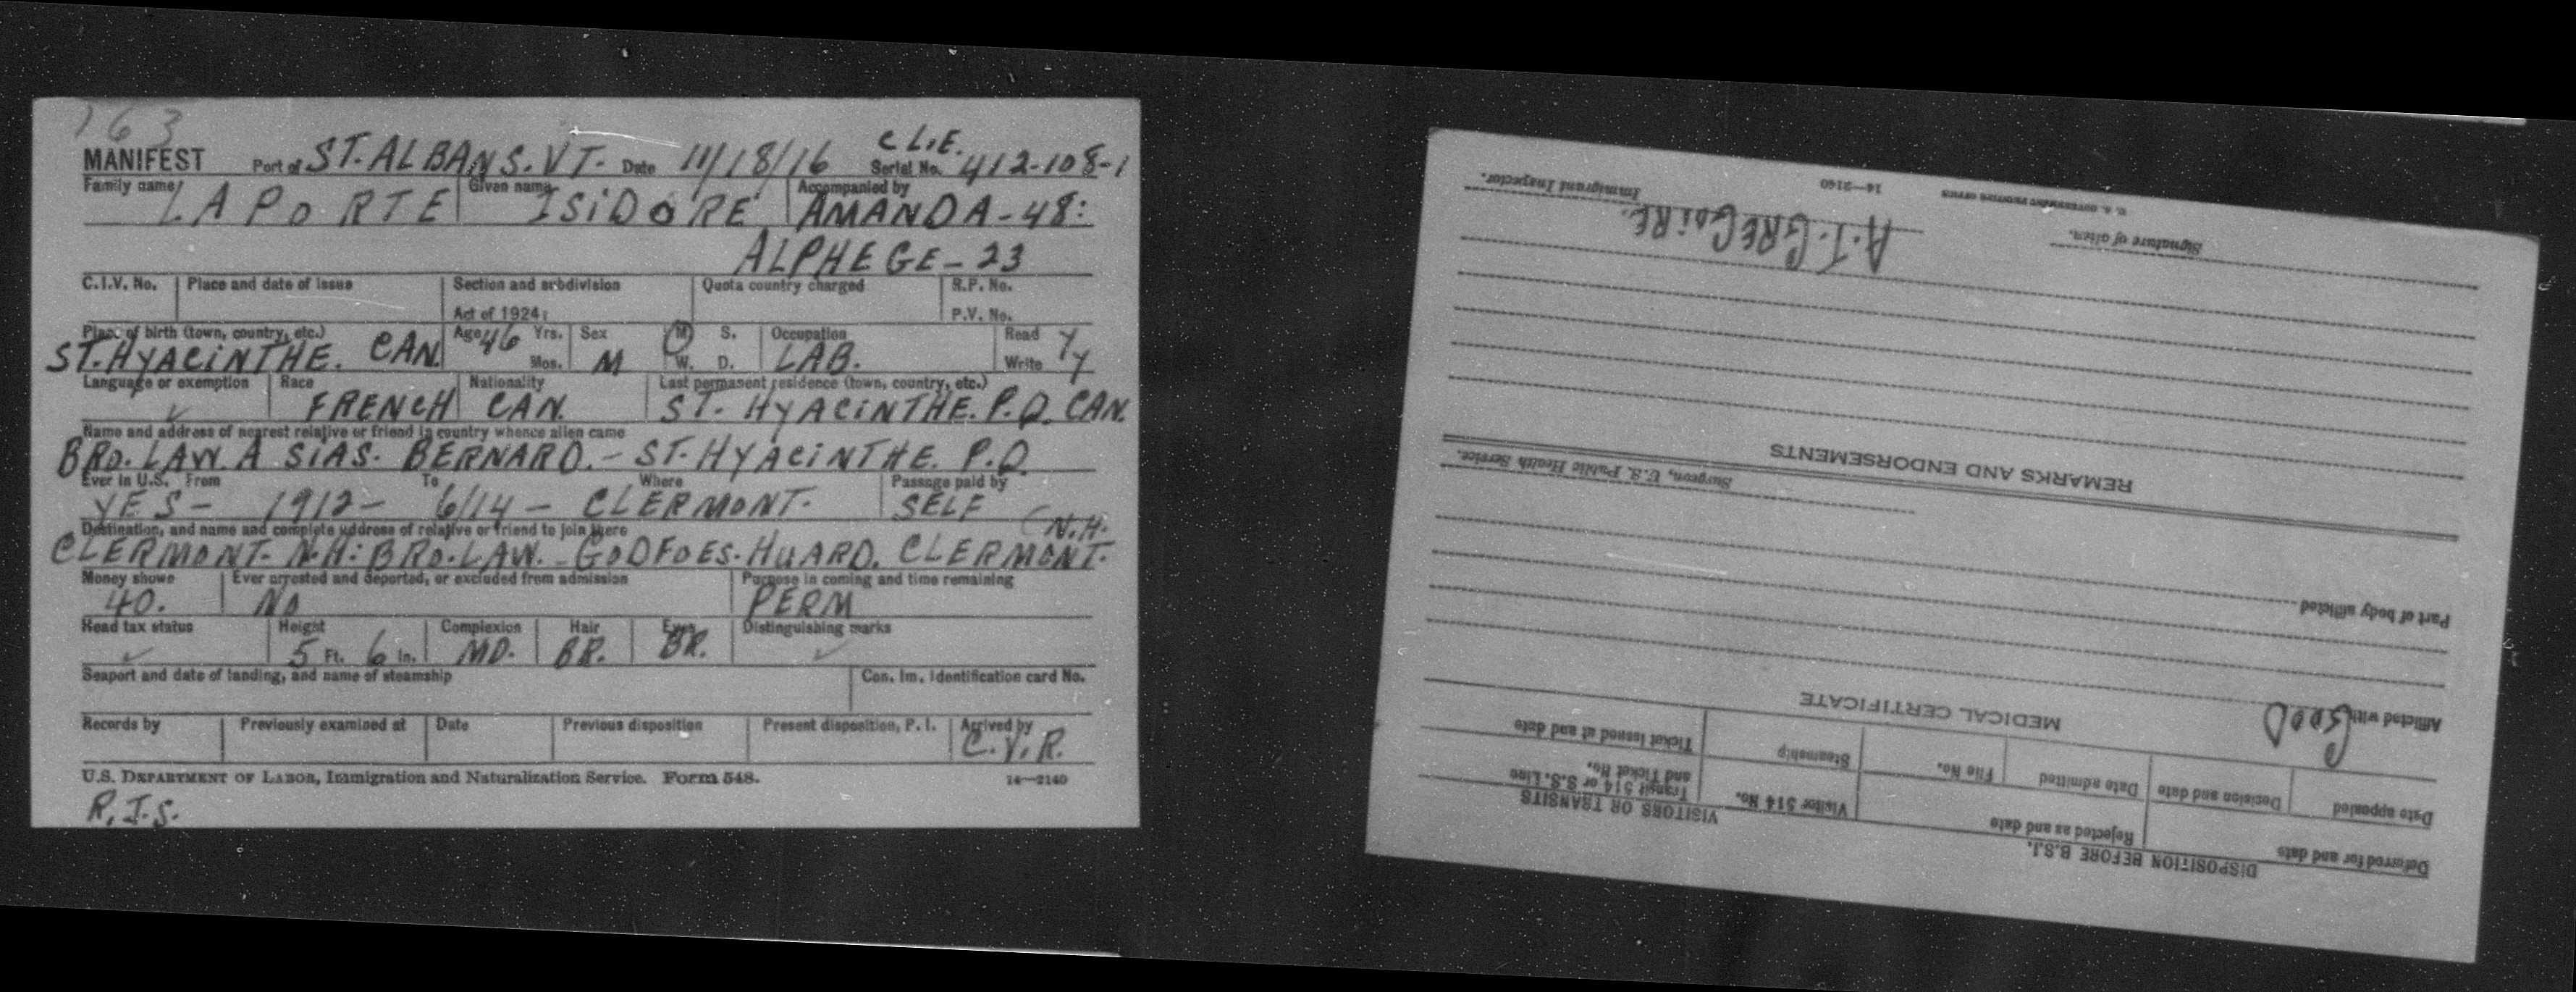 163
C L.E.
MANIFEST Port of ST. ALBANS. VT. Date 11/18/16 Serial No. 412-108-1
Family name LAPORTE Given name ISIDORE Accompanied by AMANDA-48:
ALPHEGE-23
C.I.V. No. Place and date of issue Section and subdivision Quota country charged R.P. No.
Act of 1924: P.V. No.
Place of birth (town, country, etc.) Age 46 Yrs. Sex M S. Occupation Read Y
ST. HYACINTHE. CAN. Mos. M W. D. LAB. Write Y
Language or exemption Race Nationality Last permanent residence (town, country, etc.)
FRENCH CAN. ST. HYACINTHE. P.Q. CAN.
Name and address of nearest relative or friend in country whence alien came
BRO. LAW. A SIAS. BERNARD.- ST. HYACINTHE. P.Q.
Ever in U.S. From To Where Passage paid by
YES- 1912- 6/14- CLERMONT. SELF
Destination, and name and complete address of relative or friend to join there (N.H.
CLERMONT. N.H: BRO. LAW. - GODFOES. HUARD. CLERMONT.
Money shown Ever arrested and deported, or excluded from admission Purpose in coming and time remaining
40. NO PERM
Head tax status Height Complexion Hair Eyes Distinguishing marks
✓ 5 Ft. 6 In. MD. BR. BR. ✓
Seaport and date of landing, and name of steamship Con. Im. Identification card No.
Records by Previously examined at Date Previous disposition Present disposition, P. I. Arrived by
C.V.R.
U.S. DEPARTMENT OF LABOR, Immigration and Naturalization Service. Form 548. 14—2140
R.I.S.
DISPOSITION BEFORE B.S.I. VISITORS OR TRANSITS
Deferred for and date Rejected as and date Visitor 514 No. Transit 514 or S.S. Line and Ticket No.
Date appealed Decision and date Date admitted File No. Steamship Ticket issued at and date
MEDICAL CERTIFICATE
Afflicted with GOOD
Part of body afflicted
Surgeon, U.S. Public Health Service.
REMARKS AND ENDORSEMENTS
A.T. GREGOIRE.
Signature of alien. Immigrant Inspector.
U. S. GOVERNMENT PRINTING OFFICE 14—2140